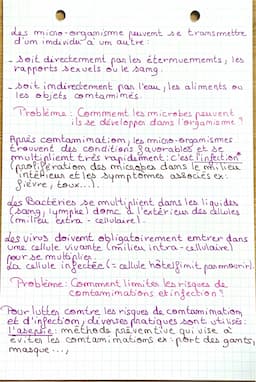 Les micro-organisme peuvent se transmettre
d'un individu à un autre:
- Soit directement par les éternuements, les
rapports sexuels ou le sang.
- soit indirectement par l'eau, les aliments ou
les objets contaminés.
Problème: Comment les microbes peuvent
ils se développer dans l'organisme?
Après contamination, les micro-organismes
trouvent des conditions favorables et se
multiplient très rapidement: c'est l'infection*
(prolifération des microbes dans le milieu
intérieur et les symptômes associés ex:
fièvre, toux...).
Les Bactéries se multiplient dans les liquides
(sang, lymphe) donc à l'extérieur des cellules
(milieu extra-cellulaire).
Les virus doivent obligatoirement entrer dans
une cellule vivante (milieu intra-cellulaire)
pour se multiplier.
La cellule infectée (= cellule hôte) finit par mourir.
Problème: Comment limiter les risques de
contaminations et infection?
Pour lutter contre les risques de contamination
et d'infection, diverses pratiques sont utilisés:
l'asepsie: méthode préventive qui vise à
éviter les contaminations ex: port des gants,
masque...,